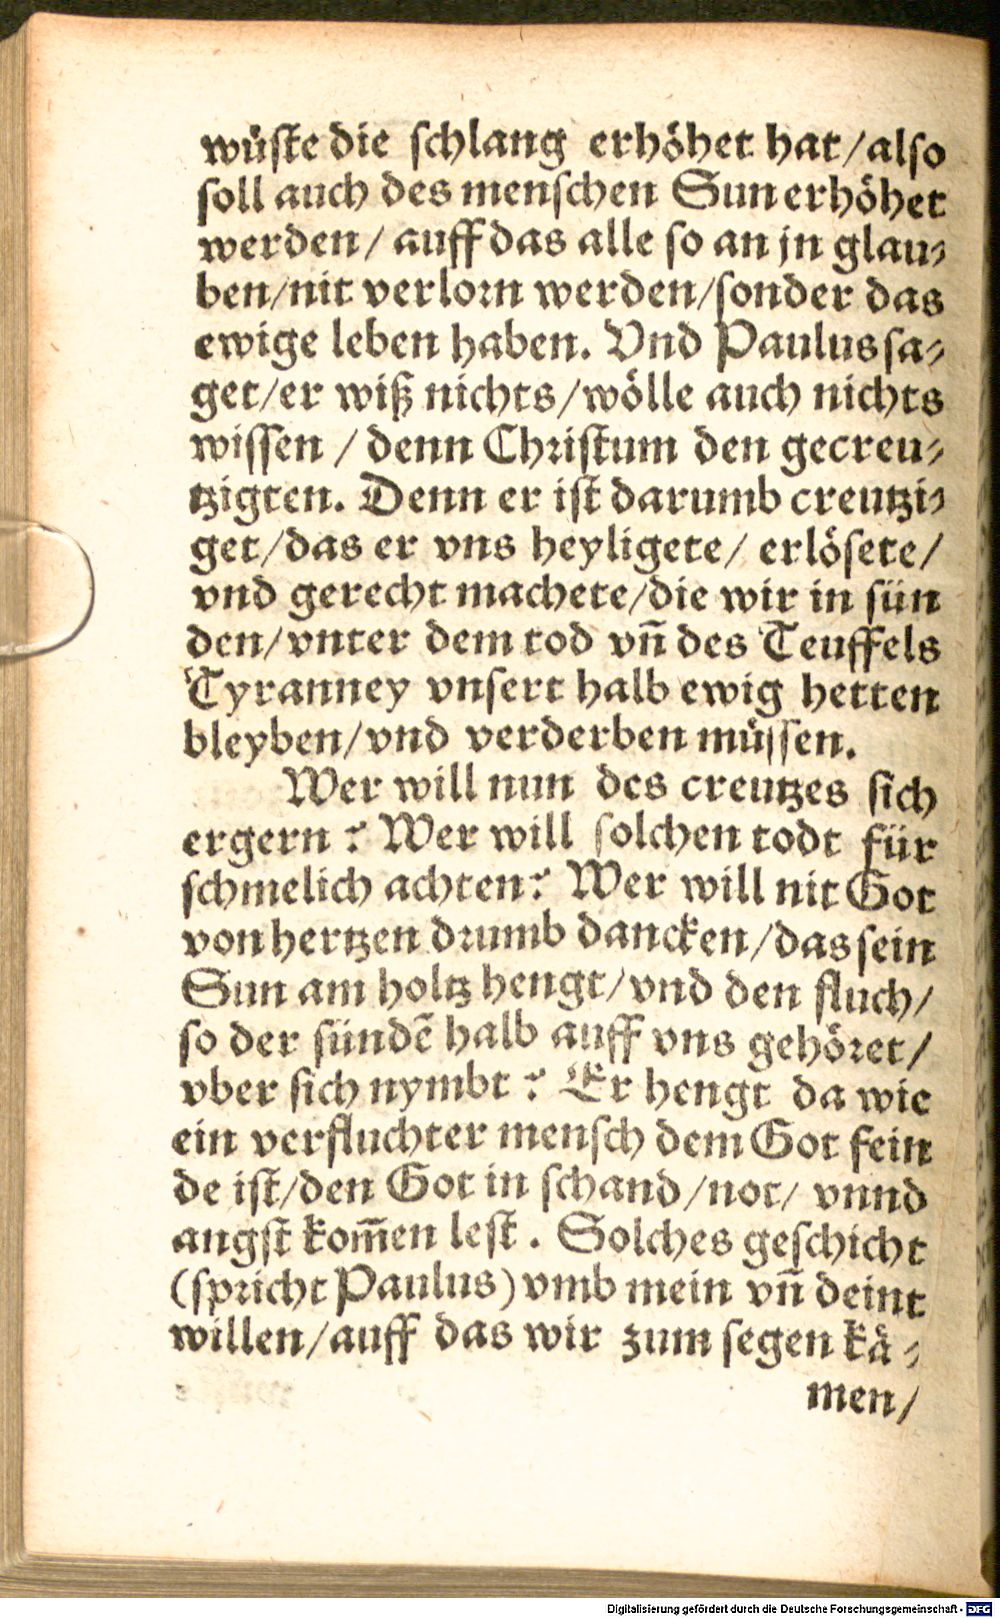 wüſte die ſchlang erhöhet hat/alſo
ſoll auch des menſchen Sun erhöhet
werden/ auff das alle ſo an jn glau⸗
ben/nit verlorn werden/ſonder das
ewige leben haben. Vnd Paulus ſa⸗
get/er wiß nichts/wölle auch nichts
wiſſen / denn Chriſtum den gecreu⸗
tzigten. Denn er iſt darumb creutzi⸗
get/das er vns heyligete/ erlöſete/
vnd gerecht machete/die wir in ſün
den/vnter dem tod vn̄ des Teuffels
Tyranney vnſert halb ewig hetten
bleyben/vnd verderben müſſen.
Wer will nun des creutzes ſich
ergern? Wer will ſolchen todt für
ſchmelich achten? Wer will nit Got
von hertzen drumb dancken/das ſein
Sun am holtz hengt/vnd den fluch/
ſo der ſündē halb auff vns gehöret/
vber ſich nymbt? Er hengt da wie
ein verfluchter menſch dem Got fein
de iſt/den Got in ſchand/not/ vnnd
angſt kom̄en leſt. Solches geſchicht
(ſpricht Paulus) vmb mein vn̄ deint
willen/auff das wir zum ſegen kä⸗
men/
Digitalisierung gefördert durch die Deutsche Forschungsgemeinschaft - DFG